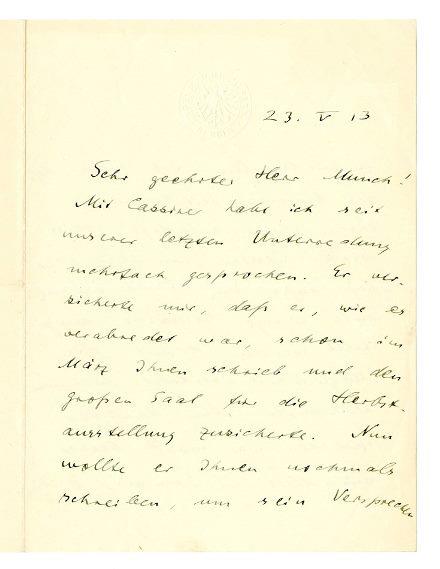 23. V 13
Sehr geehrter Herr Munch!
Mit Cassirer habe ich seit
unserer letzten Unterredung
mehrfach gesprochen. Er ver-
sicherte mir, daß er, wie es
verabredet war, schon im
März Ihnen schrieb und den
großen Saal für die Herbst-
ausstellung zusicherte. Nun
wollte er Ihnen nochmals
schreiben, um sein Versprechen